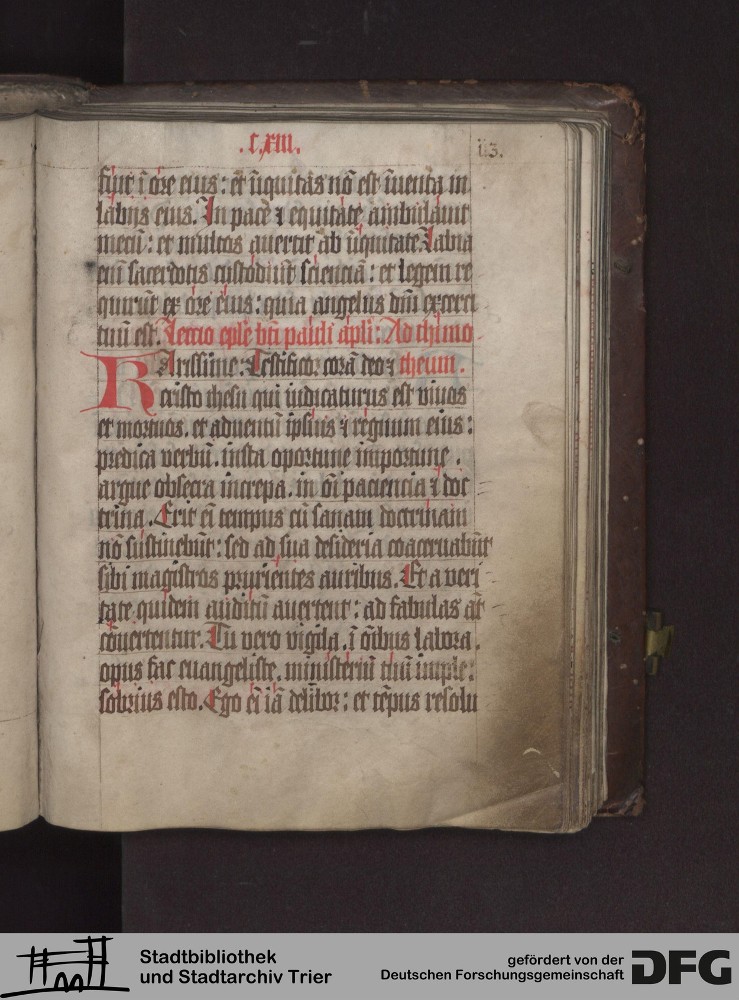 .C.xiii.
113.
fuit ī ore eius : et īiquitas nō est īuenta in
labijs eius. In pace ⁊ equitate ambulauit
mecū : et multos auertit ab īiquitate. Labia
enī sacerdotis custodiūt scienciā : et legem re
quirūt ex ore eius : quia angelus dnī exerci
tuū est. Lectio eple bti pauli apli : Ad thimo
Karissime : Testificor corā deo ⁊ theum.
cristo ihesu qui iudicaturus est viuos
et mortuos. et aduentū ipsius ⁊ regnum eius :
predica verbū. insta oportune importune.
argue obsecra increpa. in oī paciencia ⁊ doc
trina. Erit eī tempus cū sanam doctrinam
nō sustinebūt : sed ad sua desideria coaceruabūt
sibi magistros prurientes auribus. Et a veri
tate quidem auditū auertent : ad fabulas aūt
cōuertentur. Tu vero vigila. ī oībus labora.
opus fac euangeliste. ministeriū tuū imple :
sobrius esto. Ego eī iā delibor : et tēpus resolu
Stadtbibliothek
und Stadtarchiv Trier
gefördert von der
Deutschen Forschungsgemeinschaft
DFG